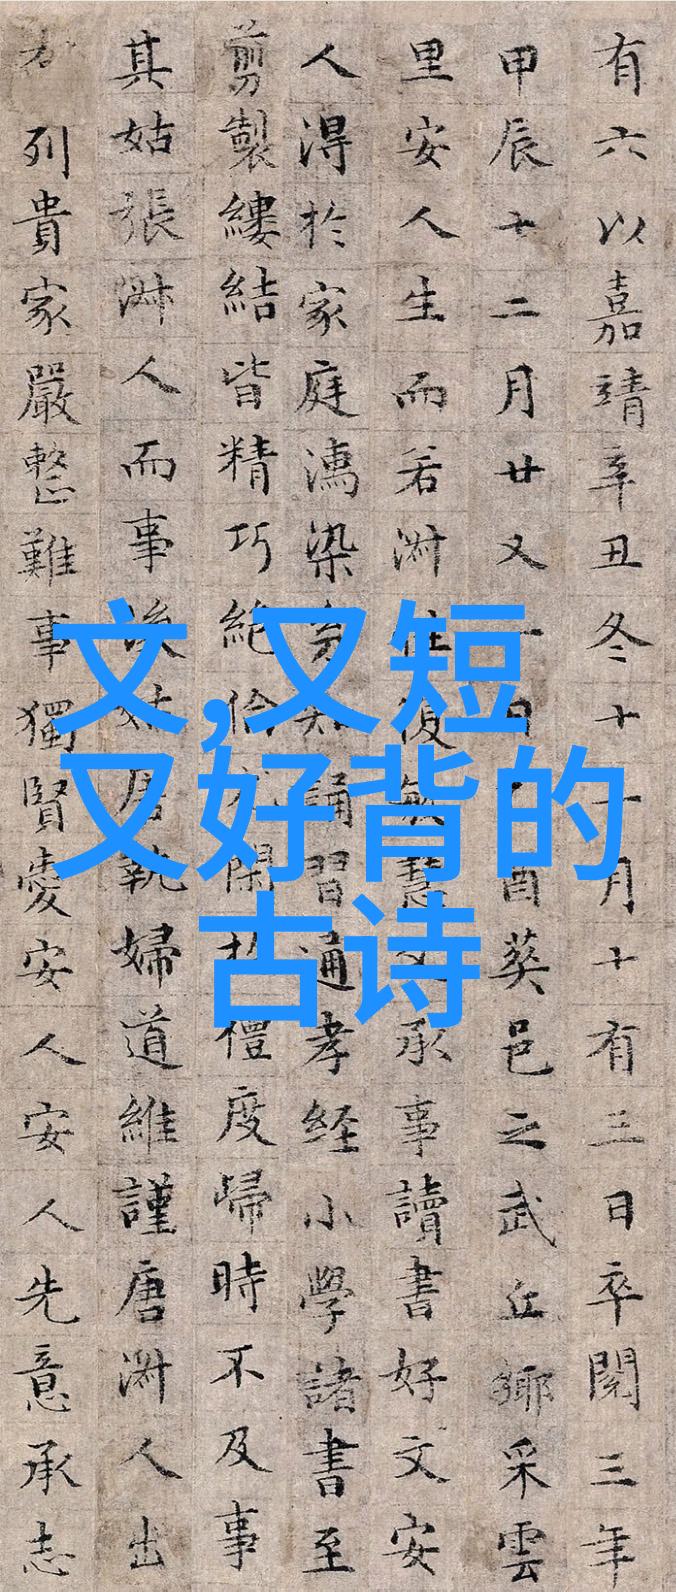 有六以嘉靖辛丑冬十一月十有三日卒閱三年
甲辰十二月廿又一日酉葵邑之武丘鄉采雲
里安人生而若淑性復敏慧承事讀書好文安
人得於家庭濡染多知誦習通孝經小學諸書至
剪製縷結皆精巧絕倫閑於禮度歸時不及事
其姑張淑人而事後姑唐執婦道維謹唐淑人出
列貴家嚴整難事獨賢愛安人安人先意承志
文,又短
又好背的
古诗